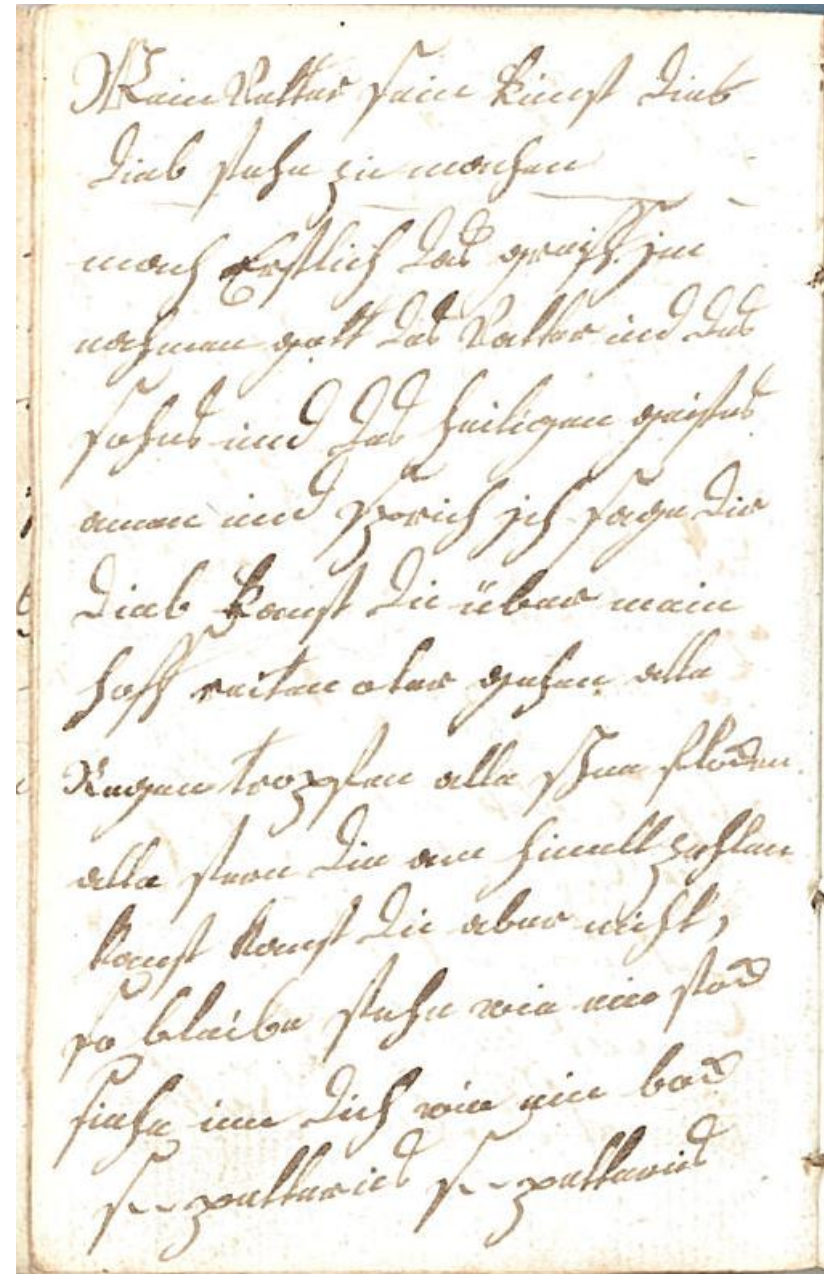 Mein Vatter sein Kunst dieb
dieb stehn zu machen
mach Erstlich das greiß. im
nahmen gott des Vatter und des
sohns und des heiligen geistes
amen und sprich ich sage dir
dieb kanst du über mein
hoff reiten oder gehen alle
Regen tropfen alle schne flocken
alle stern die am himell zehlen
kanst kanst du aber nicht,
so bleibe stehn wie ein stock
siehe um dich wie ein bock
s-petterus s-petterus